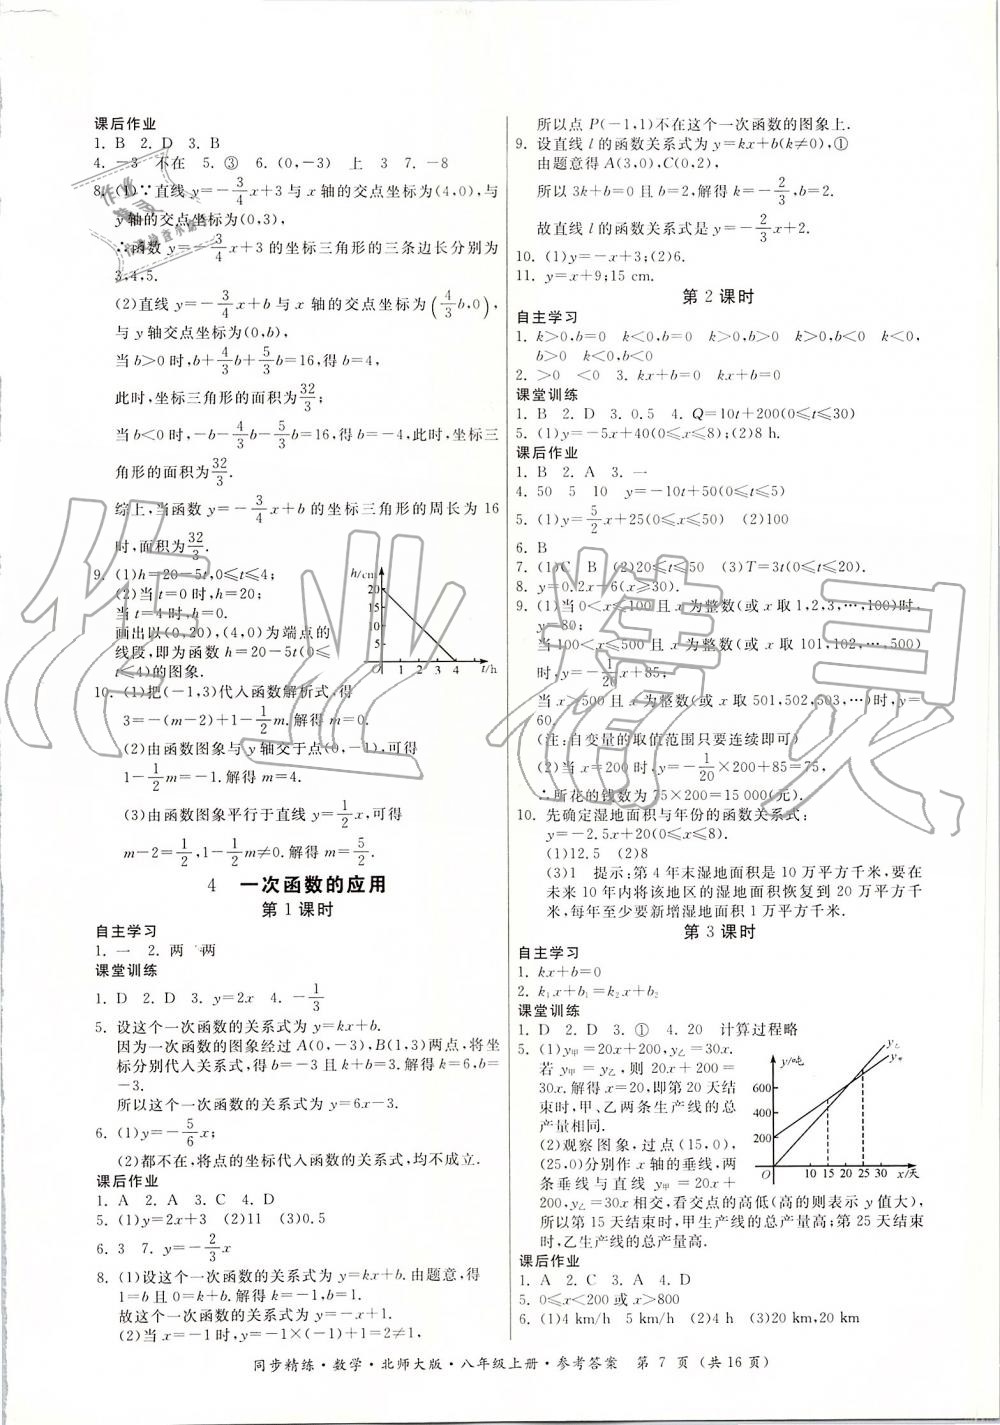 课后作业
1. B 2. D 3. B
4. －3 不在 5. ③ 6. (0,－3) 上 3 7. －8
8. (1)∵直线 y=－3/4x+3 与 x 轴的交点坐标为(4,0),与
y 轴的交点坐标为(0,3),
∴函数 y=－3/4x+3 的坐标三角形的三条边长分别为
3,4,5.
(2)直线 y=－3/4x+b 与 x 轴的交点坐标为(4/3b,0),
与 y 轴交点坐标为(0,b),
当 b>0 时,b+4/3b+5/3b=16,得 b=4,
此时,坐标三角形的面积为32/3;
当 b<0 时,－b－4/3b－5/3b=16,得 b=－4,此时,坐标三
角形的面积为32/3.
综上,当函数 y=－3/4x+b 的坐标三角形的周长为 16
时,面积为32/3.
9. (1)h=20－5t,0≤t≤4;
(2)当 t=0 时,h=20;
当 t=4 时,h=0.
画出以(0,20),(4,0)为端点的
线段,即为函数 h=20－5t(0≤
t≤4)的图象.
h/cm
20
15
10
5
O 1 2 3 4 t/h
10. (1)把(－1,3)代入函数解析式,得
3=－(m－2)+1－1/2m.解得 m=0.
(2)由函数图象与 y 轴交于点(0,－1),可得
1－1/2m=－1.解得 m=4.
(3)由函数图象平行于直线 y=1/2x,可得
m－2=1/2,1－1/2m≠0.解得 m=5/2.
4 一次函数的应用
第 1 课时
自主学习
1. 一 2. 两 两
课堂训练
1. D 2. D 3. y=2x 4. －1/3
5. 设这个一次函数的关系式为 y=kx+b.
因为一次函数的图象经过 A(0,－3),B(1,3)两点,将坐
标分别代入关系式,得 b=－3 且 k+b=3.解得 k=6,b=
－3.
所以这个一次函数的关系式为 y=6x－3.
6. (1)y=－5/6x;
(2)都不在,将点的坐标代入函数的关系式,均不成立.
课后作业
1. A 2. A 3. C 4. D
5. (1)y=2x+3 (2)11 (3)0.5
6. 3 7. y=－2/3x
8. (1)设这个一次函数的关系式为 y=kx+b.由题意,得
1=b 且 0=k+b.解得 k=－1,b=1.
故这个一次函数的关系式为 y=－x+1.
(2)当 x=－1 时,y=－1×(－1)+1=2≠1,
所以点 P(－1,1)不在这个一次函数的图象上.
9. 设直线 l 的函数关系式为 y=kx+b(k≠0),①
由题意得 A(3,0),C(0,2),
所以 3k+b=0 且 b=2,解得 k=－2/3,b=2.
故直线 l 的函数关系式是 y=－2/3x+2.
10. (1)y=－x+3;(2)6.
11. y=x+9;15 cm.
第 2 课时
自主学习
1. k>0,b=0 k<0,b=0 k>0,b>0 k>0,b<0 k<0,
b>0 k<0,b<0
2. >0 <0 3. kx+b=0 kx+b=0
课堂训练
1. B 2. D 3. 0.5 4. Q=10t+200(0≤t≤30)
5. (1)y=－5x+40(0≤x≤8);(2)8 h.
课后作业
1. B 2. A 3. 一
4. 50 5 10 y=－10t+50(0≤t≤5)
5. (1)y=5/2x+25(0≤x≤50) (2)100
6. B
7. (1)C B (2)20≤t≤50 (3)T=3t(0≤t≤20).
8. y=0.2x－6(x≥30).
9. (1)当 0<x≤100 且 x 为整数(或 x 取 1,2,3,…,100)时,
y=80;
当 100<x≤500 且 x 为整数(或 x 取 101,102,…,500)
时,y=－1/20x+85;
当 x>500 且 x 为整数(或 x 取 501,502,503,…)时,y=
60.
(注:自变量的取值范围只要连续即可)
(2)当 x=200 时,y=－1/20×200+85=75,
∴所花的钱数为 75×200=15 000(元).
10. 先确定湿地面积与年份的函数关系式:
y=－2.5x+20(0≤x≤8).
(1)12.5 (2)8
(3)1 提示:第 4 年末湿地面积是 10 万平方千米,要在
未来 10 年内将该地区的湿地面积恢复到 20 万平方千
米,每年至少要新增湿地面积 1 万平方千米.
第 3 课时
自主学习
1. kx+b=0
2. k₁x+b₁=k₂x+b₂
课堂训练
1. D 2. D 3. ① 4. 20 计算过程略
5. (1)y甲=20x+200,y乙=30x.
若 y甲=y乙,则 20x+200=
30x.解得 x=20,即第 20 天结
束时,甲、乙两条生产线的总
产量相同.
(2)观察图象,过点(15,0),
(25,0)分别作 x 轴的垂线,两
条垂线与直线 y甲=20x+
200,y乙=30x 相交,看交点的高低(高的则表示 y 值大),
所以第 15 天结束时,甲生产线的总产量高;第 25 天结束
时,乙生产线的总产量高.
y/吨
y乙
y甲
600
400
200
O 10 15 20 25 30 x/天
课后作业
1. A 2. C 3. A 4. D
5. 0≤x<200 或 x>800
6. (1)4 km/h 5 km/h (2)4 h (3)20 km,20 km
同步精练·数学·北师大版·八年级上册·参考答案 第 7 页(共 16 页)
作业精灵